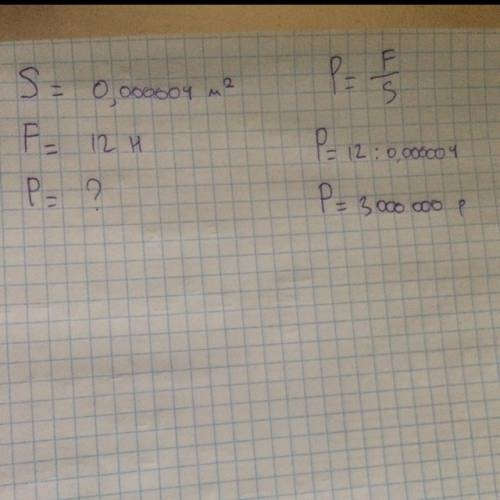 S = 0,000004 м²
F = 12 Н
P = ?
P = F/S
P = 12 : 0,000004
P = 3 000 000 р